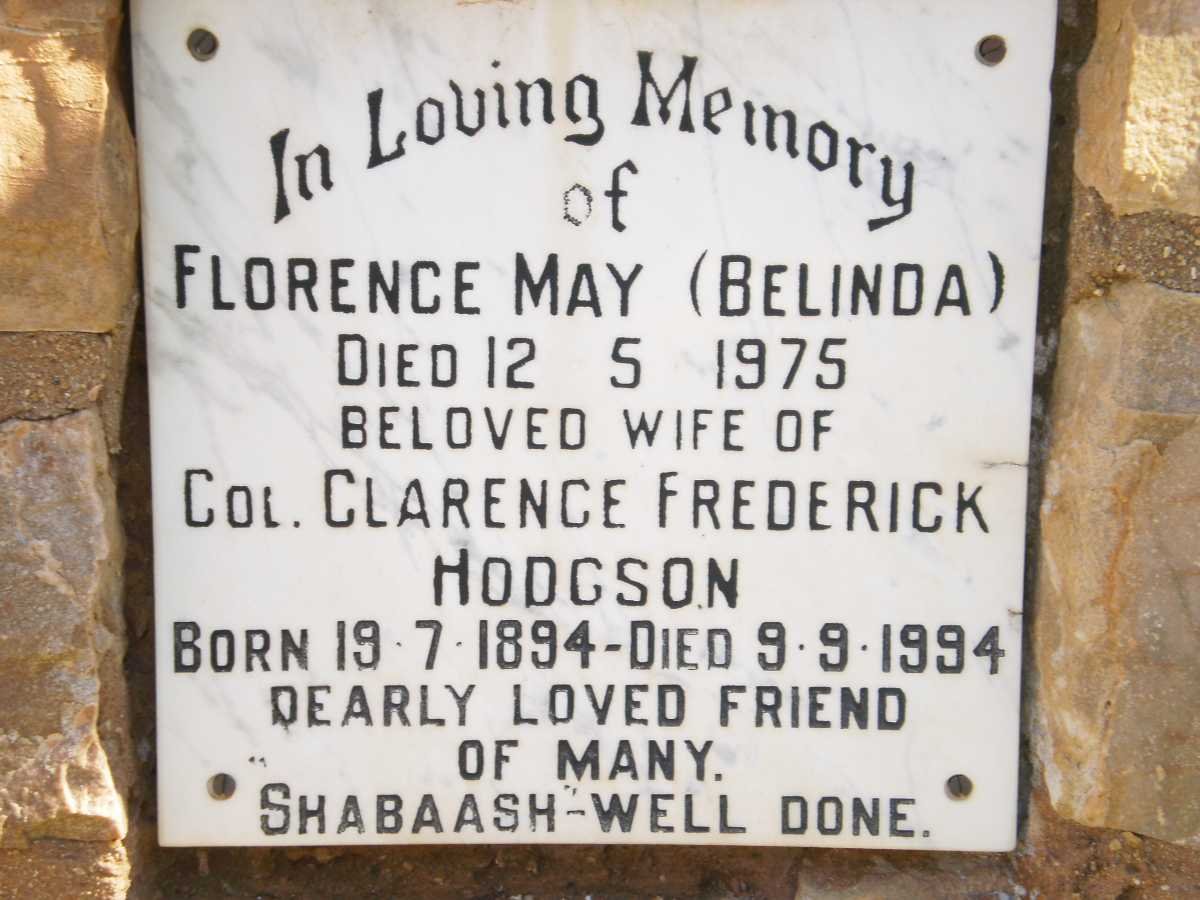 In Loving Memory
of
FLORENCE MAY (BELINDA)
DIED 12 5 1975
BELOVED WIFE OF
COL. CLARENCE FREDERICK
HODGSON
BORN 19·7·1894-DIED 9·9·1994
DEARLY LOVED FRIEND
OF MANY.
"SHABAASH"-WELL DONE.